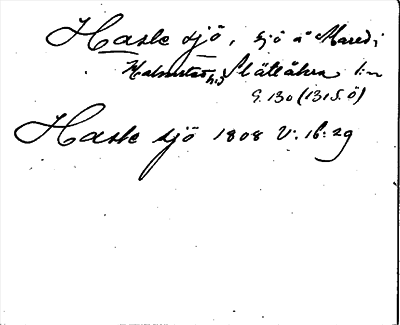 Hasle sjö, sjö å Mared i
Halmstad hd, Slättåkra l:n
G. 130 (131 S. Ö)
Hasle sjö 1808 V: 16: 29